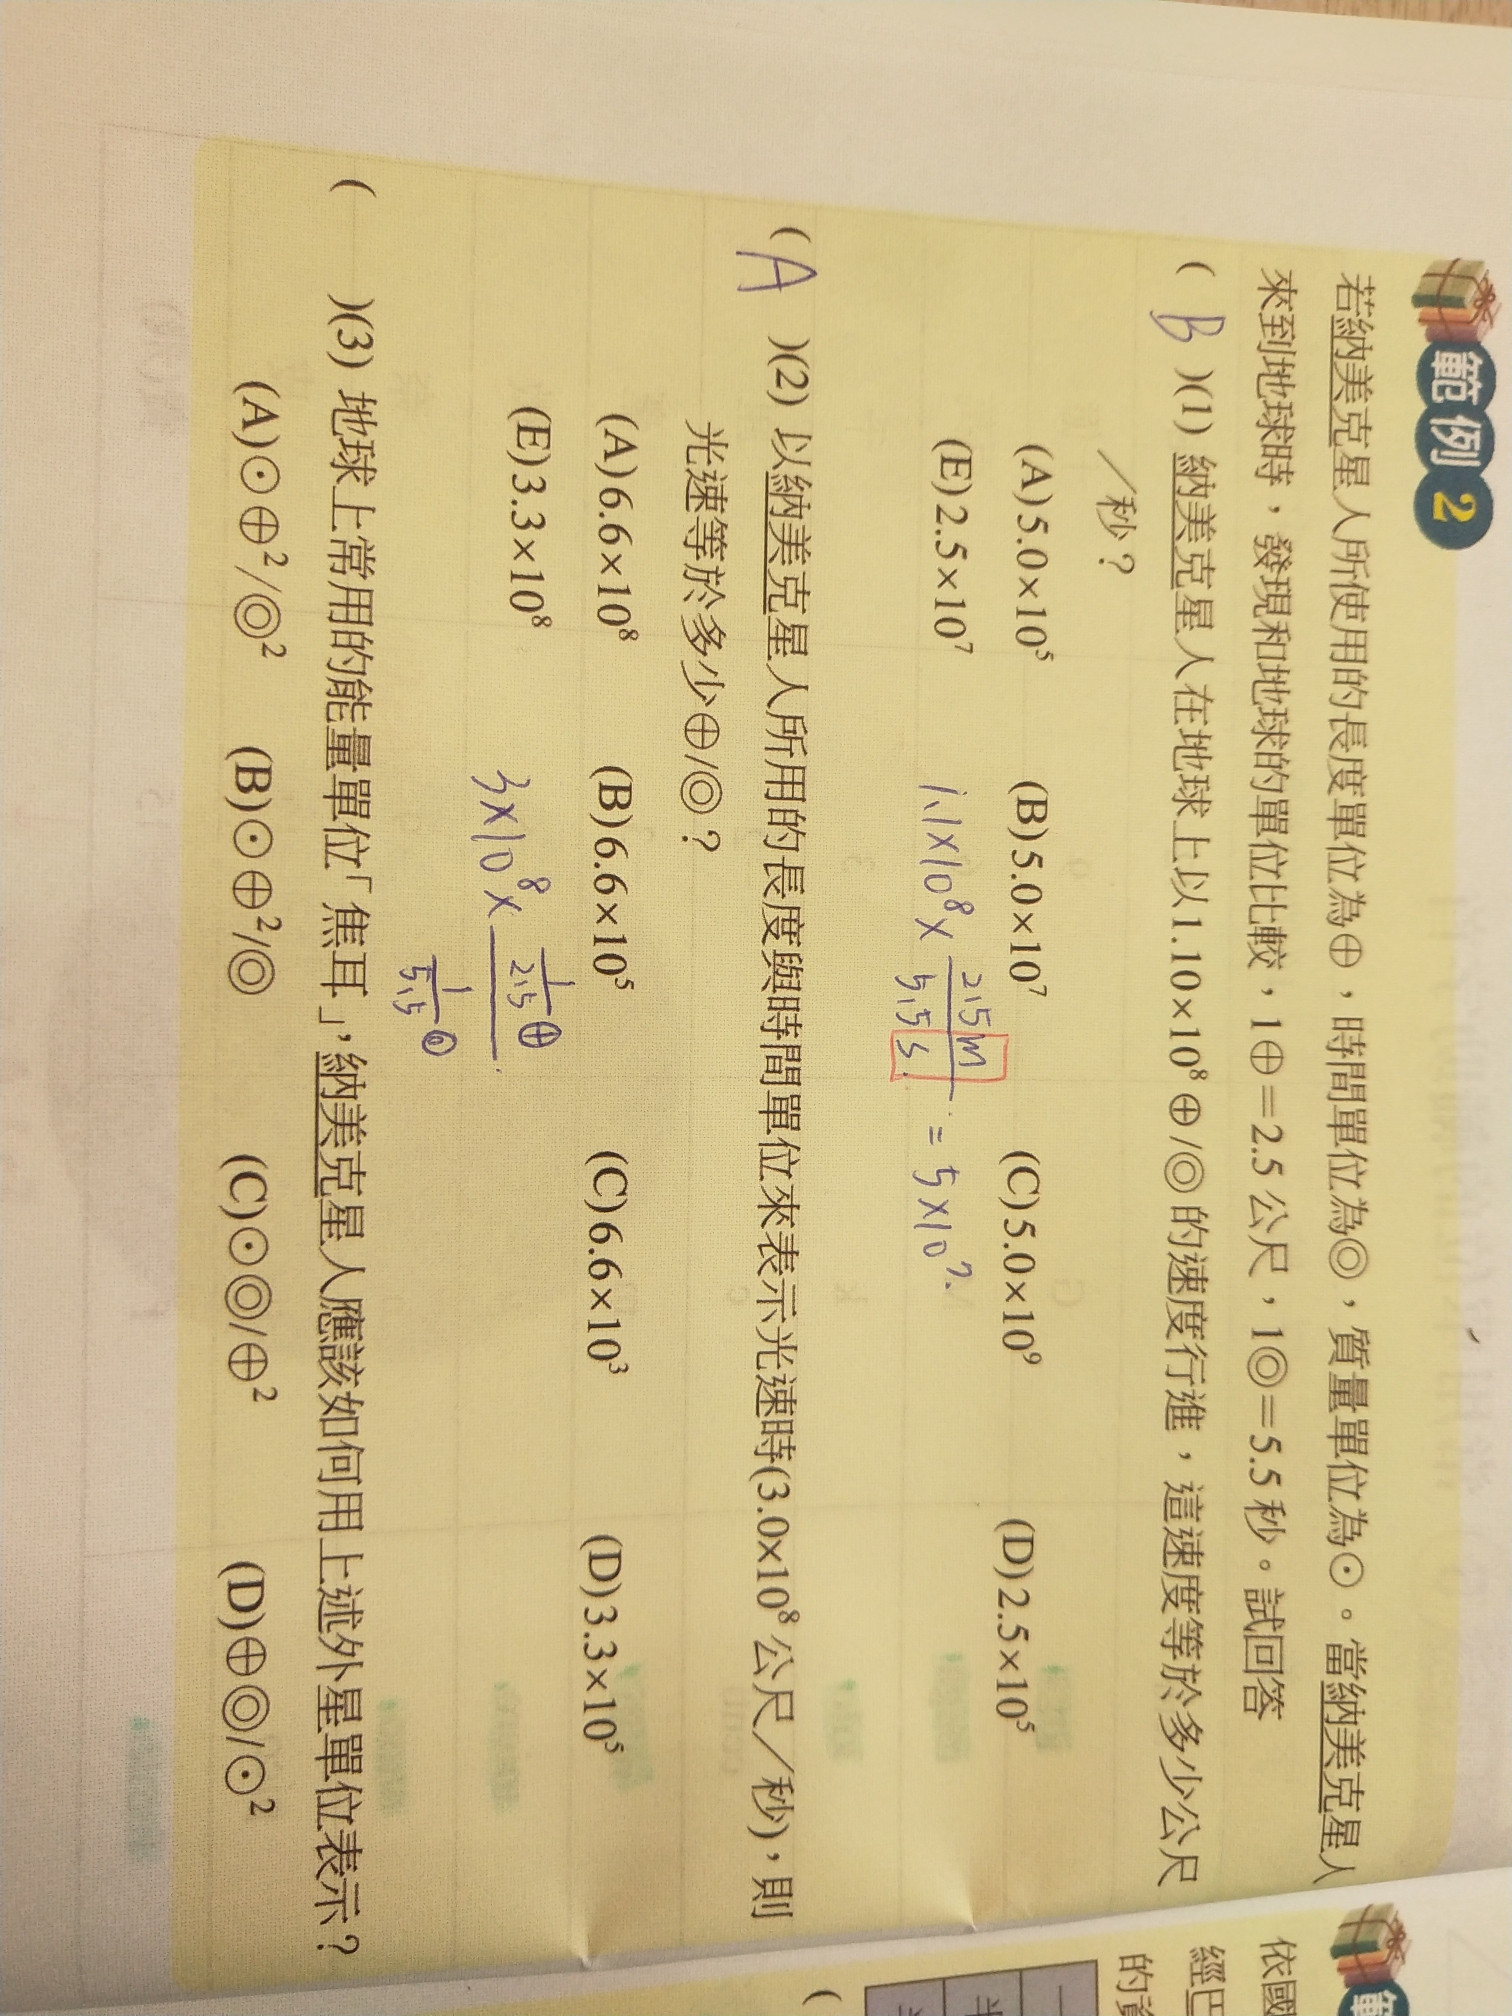 範例2
若納美克星人所使用的長度單位為⊕，時間單位為◎，質量單位為⊙。當納美克星人
來到地球時，發現和地球的單位比較，1⊕＝2.5公尺，1◎＝5.5秒。試回答
( B )(1) 納美克星人在地球上以1.10×10⁸⊕/◎的速度行進，這速度等於多少公尺
／秒？
(A)5.0×10⁵ (B)5.0×10⁷ (C)5.0×10⁹ (D)2.5×10⁵
(E)2.5×10⁷
1.1×10⁸× 2.5m/5.5s = 5×10⁷
( A )(2) 以納美克星人所用的長度與時間單位來表示光速時(3.0×10⁸公尺／秒)，則
光速等於多少⊕/◎？
(A)6.6×10⁸ (B)6.6×10⁵ (C)6.6×10³ (D)3.3×10⁵
(E)3.3×10⁸
3×10⁸× (1/2.5 ⊕)/(1/5.5 ◎)
( )(3) 地球上常用的能量單位「焦耳」，納美克星人應該如何用上述外星單位表示？
(A)⊙⊕²/◎² (B)⊙⊕²/◎ (C)⊙◎/⊕² (D)⊕◎/⊙²
範
依國
經巴
的
(
一
半